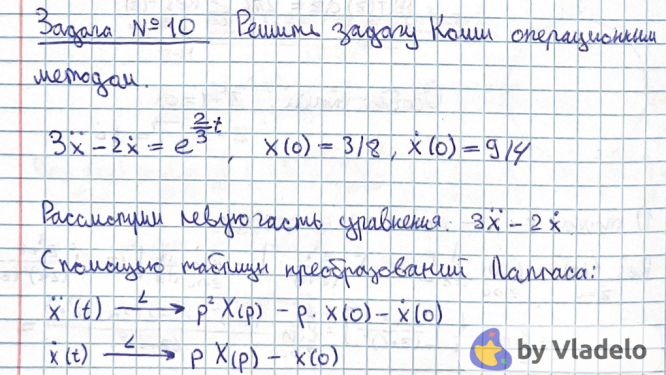 Задача №10 Решить задачу Коши операционным
методом.
3ẍ - 2ẋ = e^{2/3 t}, x(0) = 3/8, ẋ(0) = 9/4
Рассмотрим левую часть уравнения: 3ẍ - 2ẋ.
С помощью таблицы преобразований Лапласа:
ẍ(t) —L→ p² X(p) - p · x(0) - ẋ(0)
ẋ(t) —L→ p X(p) - x(0)
by Vladelo